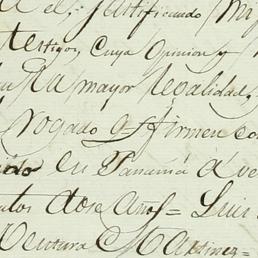 el, justificando mi
testigos, cuya opinion y
la mayor legalidad,
rogado q. firmen co
en Panamá á ve
tos dos años = Luis
Ventura Martinez =